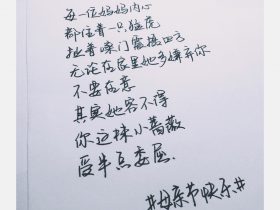 每一位妈妈内心
都住着一只猛虎
扯着嗓门震撼四方
无论在家里她多嫌弃你
不要在意
其实她容不得
你这株小蔷薇
受半点委屈.
#母亲节快乐#